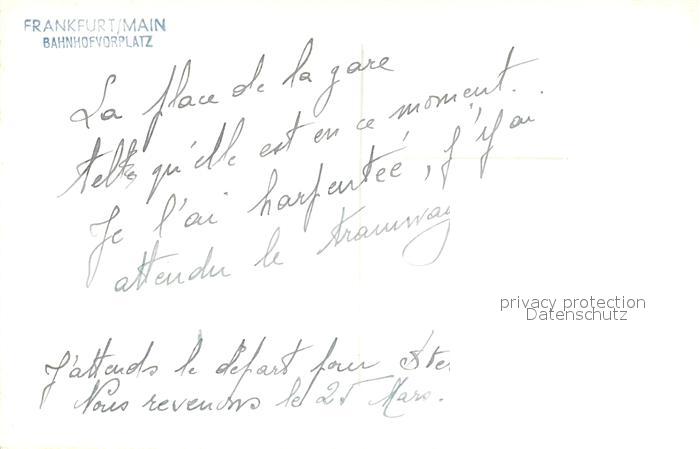 FRANKFURT/MAIN
BAHNHOFVORPLATZ
La place de la gare
telle qu'elle est en ce moment.
Je l'ai harpentée, j'y ai
attendu le tramway
privacy protection
Datenschutz
J'attends le départ pour
Nous revenons le 25 Mars.